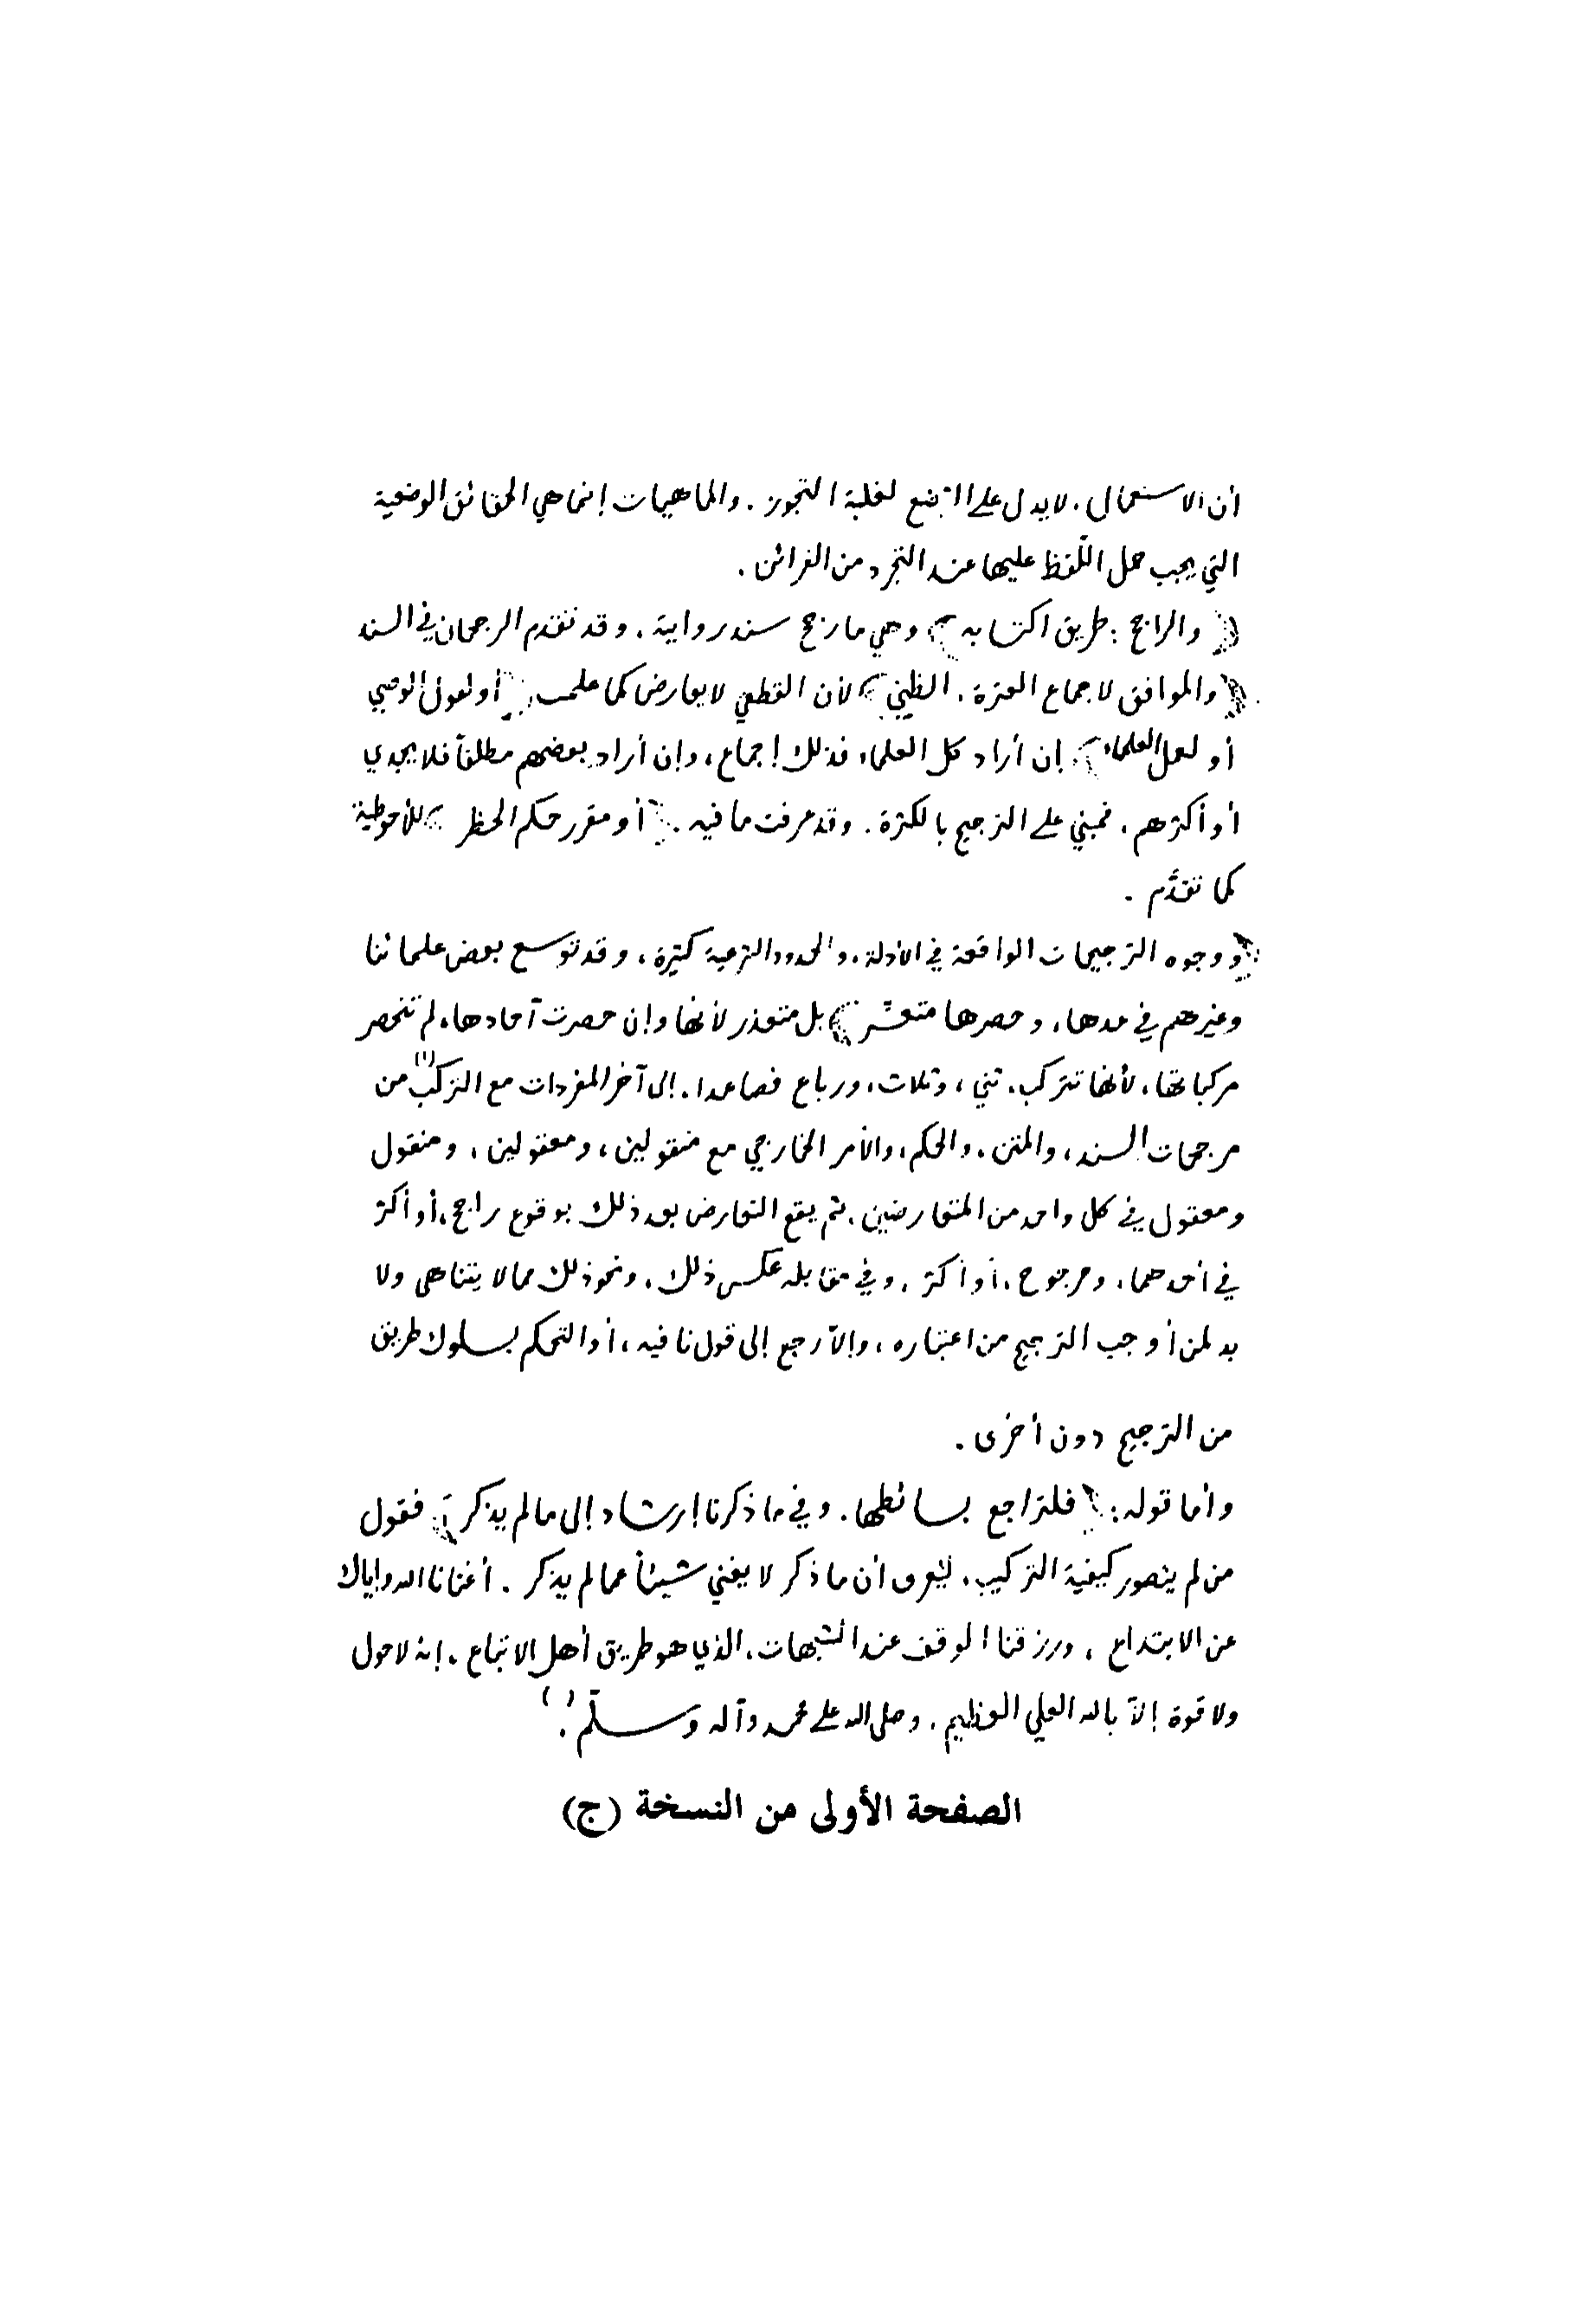 أن الاستعمال، لا يدل على الوضع لغلبة التجوز. والماهيات إنما هي الحقائق الوضعية
التي يجب حمل اللّفظ عليها عند التجرد من القرائن.
(والراجح: طريق اكتسابه) وهي ما رجح سند رواية، وقد تقدم الرجحان في السند
(والموافق لإجماع العترة، الظني) لأن القطعي لا يعارض كما علمت (أو لقول الوصي
أو لعمل العلماء) إن أراد كل العلماء فذلك إجماع، وإن أراد بعضهم مطلقاً فلا يجدي
أو أكثرهم، فمبني على الترجيح بالكثرة. وقد عرفت ما فيه. (أو مقرر حكم الحظر) للأحوطية
كما تقدَّم.
(ووجوه الترجيحات الواقعة في الأدلة، والحدود الشرعية كثيرة، وقد توسع بعض علمائنا
وغيرهم في عدها، وحصرها متعسّر) بل متعذر لأنها وإن حصرت آحادها، لم تنحصر
مركباتها، لأنها تتركب، ثنى، وثلاث، ورباع فصاعدا. إلى آخر المفردات مع التركب(١) من
مرجحات السند، والمتن، والحكم، والأمر الخارجي مع منقولين، ومعقولين، ومنقول
ومعقول في كل واحد من المتعارضين، ثم يقع التعارض بعد ذلك بوقوع راجح، أو أكثر
في أحدهما، ومرجوح، أو أكثر، وفي مقابله عكس ذلك، ونحو ذلك مما لا يتناهى ولا
بد لمن أوجب الترجيح من اعتباره، وإلاّ رجع إلى قول نافيه، أو التحكم بسلوك طريق
من الترجيح دون أخرى.
وأما قوله: (فلتراجع بسائطها. وفي ما ذكرنا إرشاد إلى ما لم يذكر) فقول
من لم يتصور كيفية التركيب، ليعرف أن ما ذكر لا يغني شيئاً عما لم يذكر. أغنانا الله وإياك
عن الابتداع، ورزقنا الوقف عند الشبهات، الذي هو طريق أهل الاتباع، إنه لا حول
ولا قوة إلاّ بالله العلي العظيم، وصلى الله على محمد وآله وسلّم.
الصفحة الأولى من النسخة (ج)